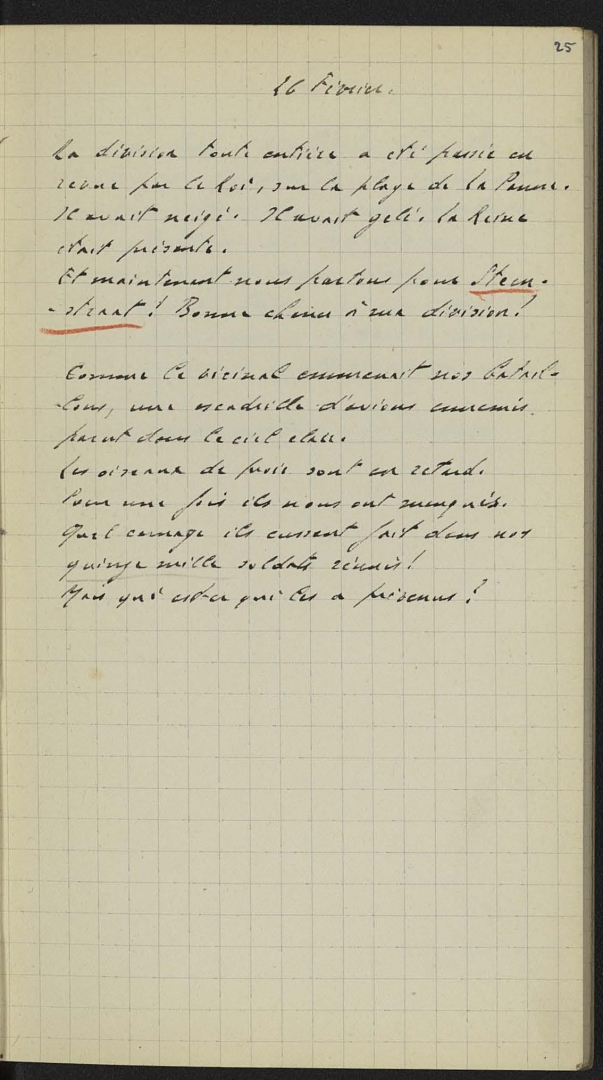 25
26 Février.
La division toute entière a été passée en
revue par le Roi, sur la plage de La Panne.
Il avait neigé. Il avait gelé. La Reine
était présente.
Et maintenant nous partons pour Steen-
-straat ! Bonne chance à sua division !
Comme le vicinal emmenait nos batail-
-lons, une escadrille d'avions ennemis
parut dans le ciel clair.
Les oiseaux de proie sont en retard.
Pour une fois ils nous ont manqués.
Quel carnage ils eussent fait dans nos
quinze mille soldats réunis !
Mais qui est-ce qui les a prévenus ?